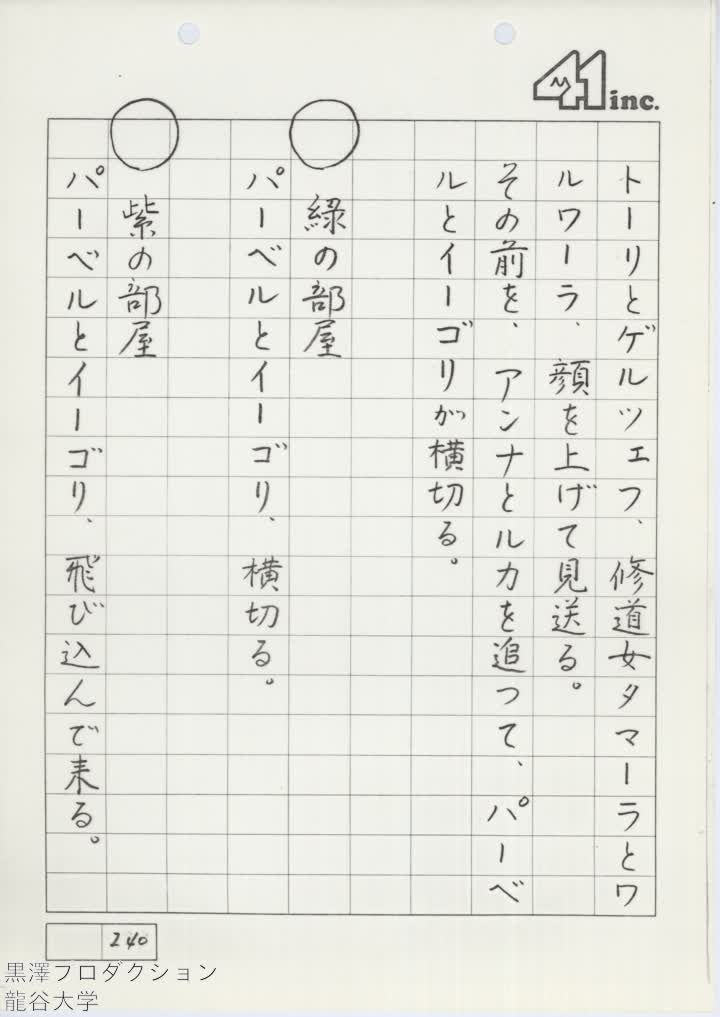 41 inc.
トーリとゲルツェフ、修道女タマーラとワ
ルワーラ、顔を上げて見送る。
その前を、アンナとルカを追って、パーベ
ルとイーゴリが横切る。
○緑の部屋
パーベルとイーゴリ、横切る。
○紫の部屋
パーベルとイーゴリ、飛び込んで来る。
240
黒澤プロダクション
龍谷大学